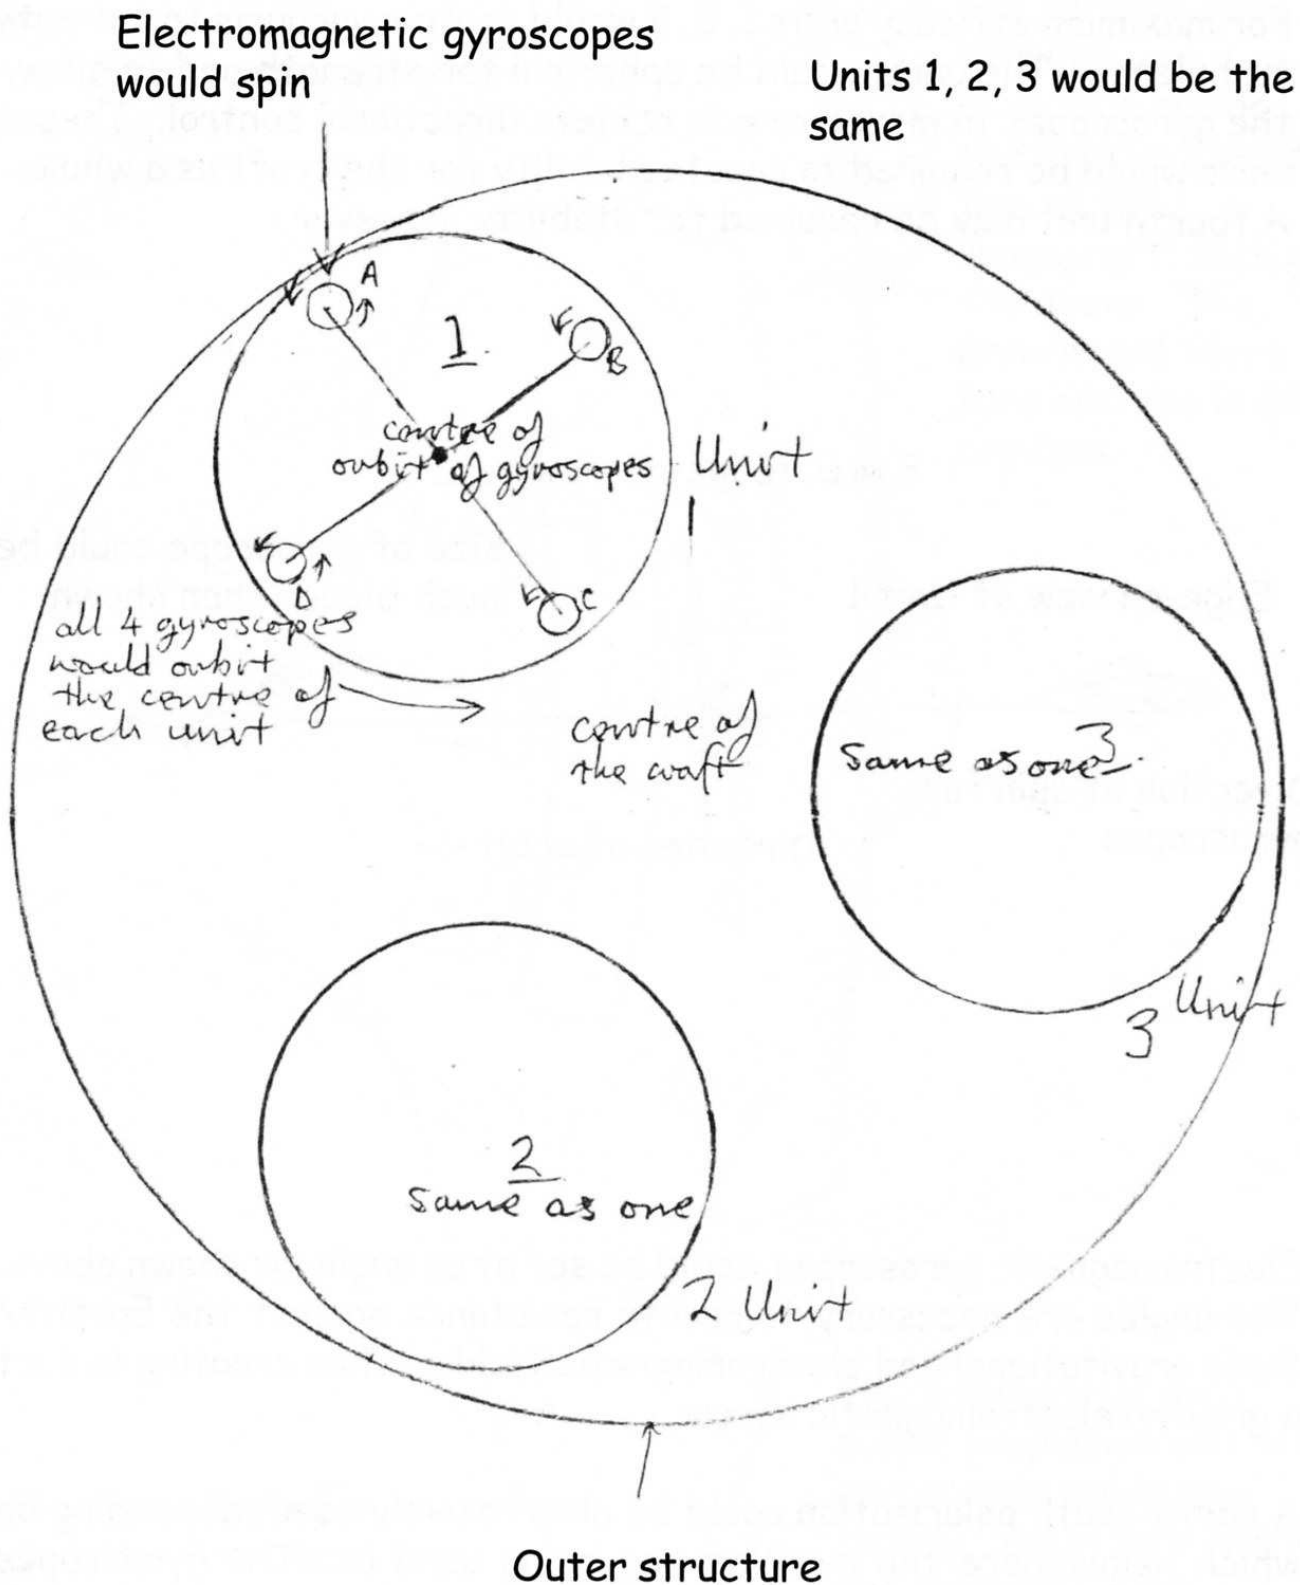 Electromagnetic gyroscopes
would spin
Units 1, 2, 3 would be the
same
A
1
B
centre of
orbit of gyroscopes
Unit
1
D
C
all 4 gyroscopes
would orbit
the centre of
each unit
centre of
the craft
Same as one 3
Unit
3
2
Same as one
2 Unit
Outer structure